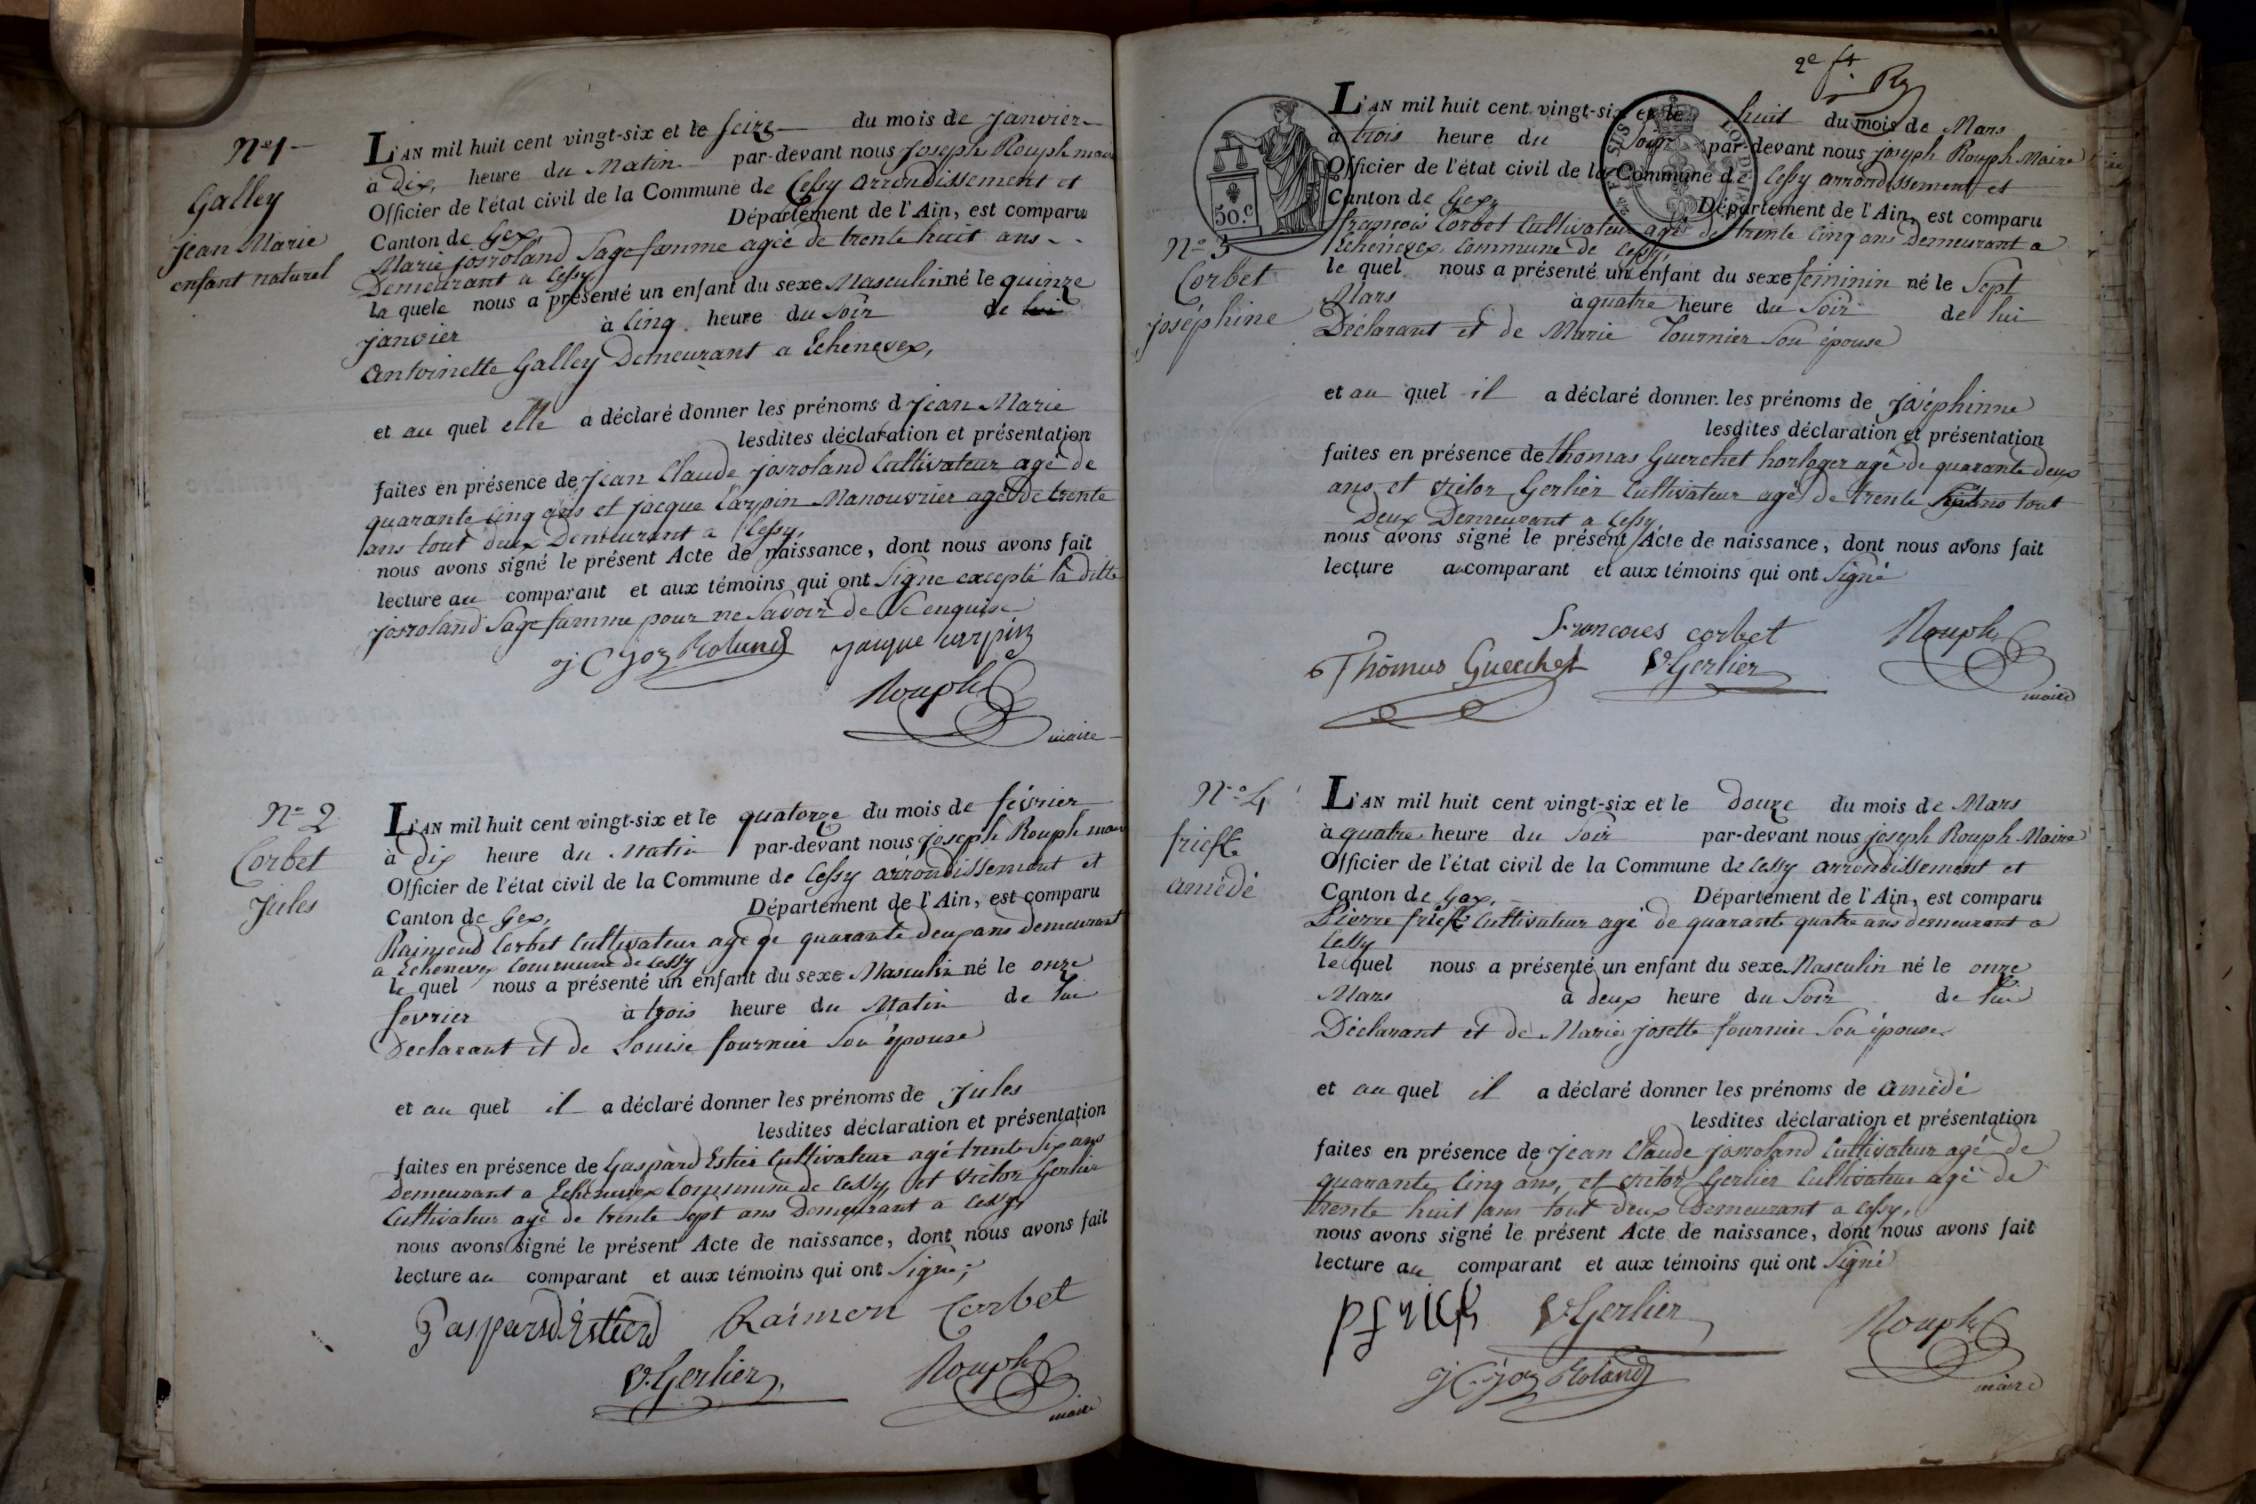 Nº 1
Galley
Jean Marie
enfant naturel
L'AN mil huit cent vingt-six et le seize du mois de Janvier
à dix heure du Matin par-devant nous Joseph Rouph maire
Officier de l'état civil de la Commune de Cessy arrondissement et
Canton de Gex, Département de l'Ain, est comparu
Marie josroland Sage famme agée de trente huit ans
Demeurant a Cessy
la quele nous a présenté un enfant du sexe Masculin né le quinze
janvier à Cinq heure du Soir de lui
antoinette Galley Demeurant a Echenevex,
et au quel elle a déclaré donner les prénoms d Jean Marie
lesdites déclaration et présentation
faites en présence de Jean Claude josroland Cultivateur agé de
quarante cinq ans et jacque Carpin Manouvrier agé de trente
ans tout deux Demeurant a Cessy,
nous avons signé le présent Acte de naissance, dont nous avons fait
lecture au comparant et aux témoins qui ont Signe excepté la ditte
josroland Sage famme pour ne Savoir de Ce enquise
j C Joz Roland jacque carpin
Rouph
maire
Nº 2
Corbet
Jules
L'AN mil huit cent vingt-six et le quatorze du mois de février
à dix heure du Matin par-devant nous joseph Rouph maire
Officier de l'état civil de la Commune de Cessy arrondissement et
Canton de Gex, Département de l'Ain, est comparu
Raimond Corbet Cultivateur agé de quarante deux ans demeurant
a Echenevex Commune de Cessy
le quel nous a présenté un enfant du sexe Masculin né le onze
fevrier à trois heure du Matin de lui
Declarant et de Louise fournier Son épouse
et au quel il a déclaré donner les prénoms de Jules
lesdites déclaration et présentation
faites en présence de Gaspard Estier Cultivateur agé trente Six ans
Demeurant a Echenevex Commune de Cessy, et Victor Gerlier
Cultivateur agé de trente sept ans Demeurant a Cessy,
nous avons signé le présent Acte de naissance, dont nous avons fait
lecture au comparant et aux témoins qui ont Signé;
Gaspard Estierd Raimon Corbet
V. Gerlier Rouph
maire
2e ft
50.c
L'AN mil huit cent vingt-six et le huit du mois de Mars
à trois heure du Soir par-devant nous joseph Rouph Maire
Officier de l'état civil de la Commune de Cessy arrondissement et
Canton de Gex, Département de l'Ain, est comparu
Nº 3
Corbet
joséphine
francois Corbet Cultivateur agé de trente Cinq ans Demeurant a
Echenevex Commune de Cessy,
le quel nous a présenté un enfant du sexe feminin né le Sept
Mars à quatre heure du Soir de lui
Déclarant et de Marie Tournier Son épouse
et au quel il a déclaré donner les prénoms de Joséphinne
lesdites déclaration et présentation
faites en présence de thomas Guerchet horloger agé de quarante deux
ans et Victor Gerlier Cultivateur agé de trente tout
Deux Demeurant a Cessy,
nous avons signé le présent Acte de naissance, dont nous avons fait
lecture au comparant et aux témoins qui ont Signé
Francoies corbet Rouph
Thomas Guerchet V. Gerlier
maire
Nº 4
friest
amédé
L'AN mil huit cent vingt-six et le douze du mois de Mars
à quatre heure du Soir par-devant nous joseph Rouph Maire
Officier de l'état civil de la Commune de Cessy arrondissement et
Canton de Gex, Département de l'Ain, est comparu
Pierre friest Cultivateur agé de quarante quatre ans demeurant a
Cessy
le quel nous a présenté un enfant du sexe Masculin né le onze
Mars à deux heure du Soir de lui
Déclarant et de Marie josette fournier Son épouse
et au quel il a déclaré donner les prénoms de amédé
lesdites déclaration et présentation
faites en présence de Jean Claude josroland Cultivateur agé de
quarante Cinq ans, et Victor Gerlier Cultivateur agé de
trente huit ans tout deux Demeurant a Cessy,
nous avons signé le présent Acte de naissance, dont nous avons fait
lecture au comparant et aux témoins qui ont Signé
V. Gerlier Rouph
j C Joz Roland maire